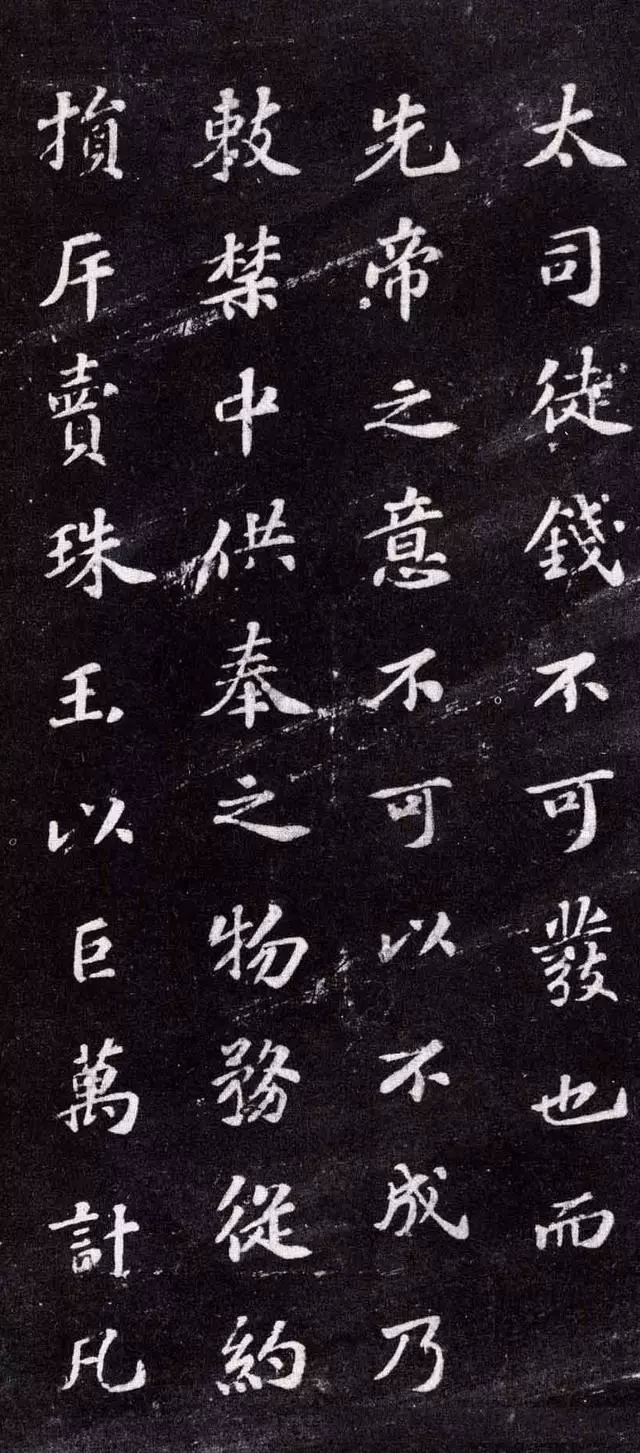 太司徒錢不可發也而
先帝之意不可以不成乃
敕禁中供奉之物務從約
損斥賣珠玉以巨萬計凡